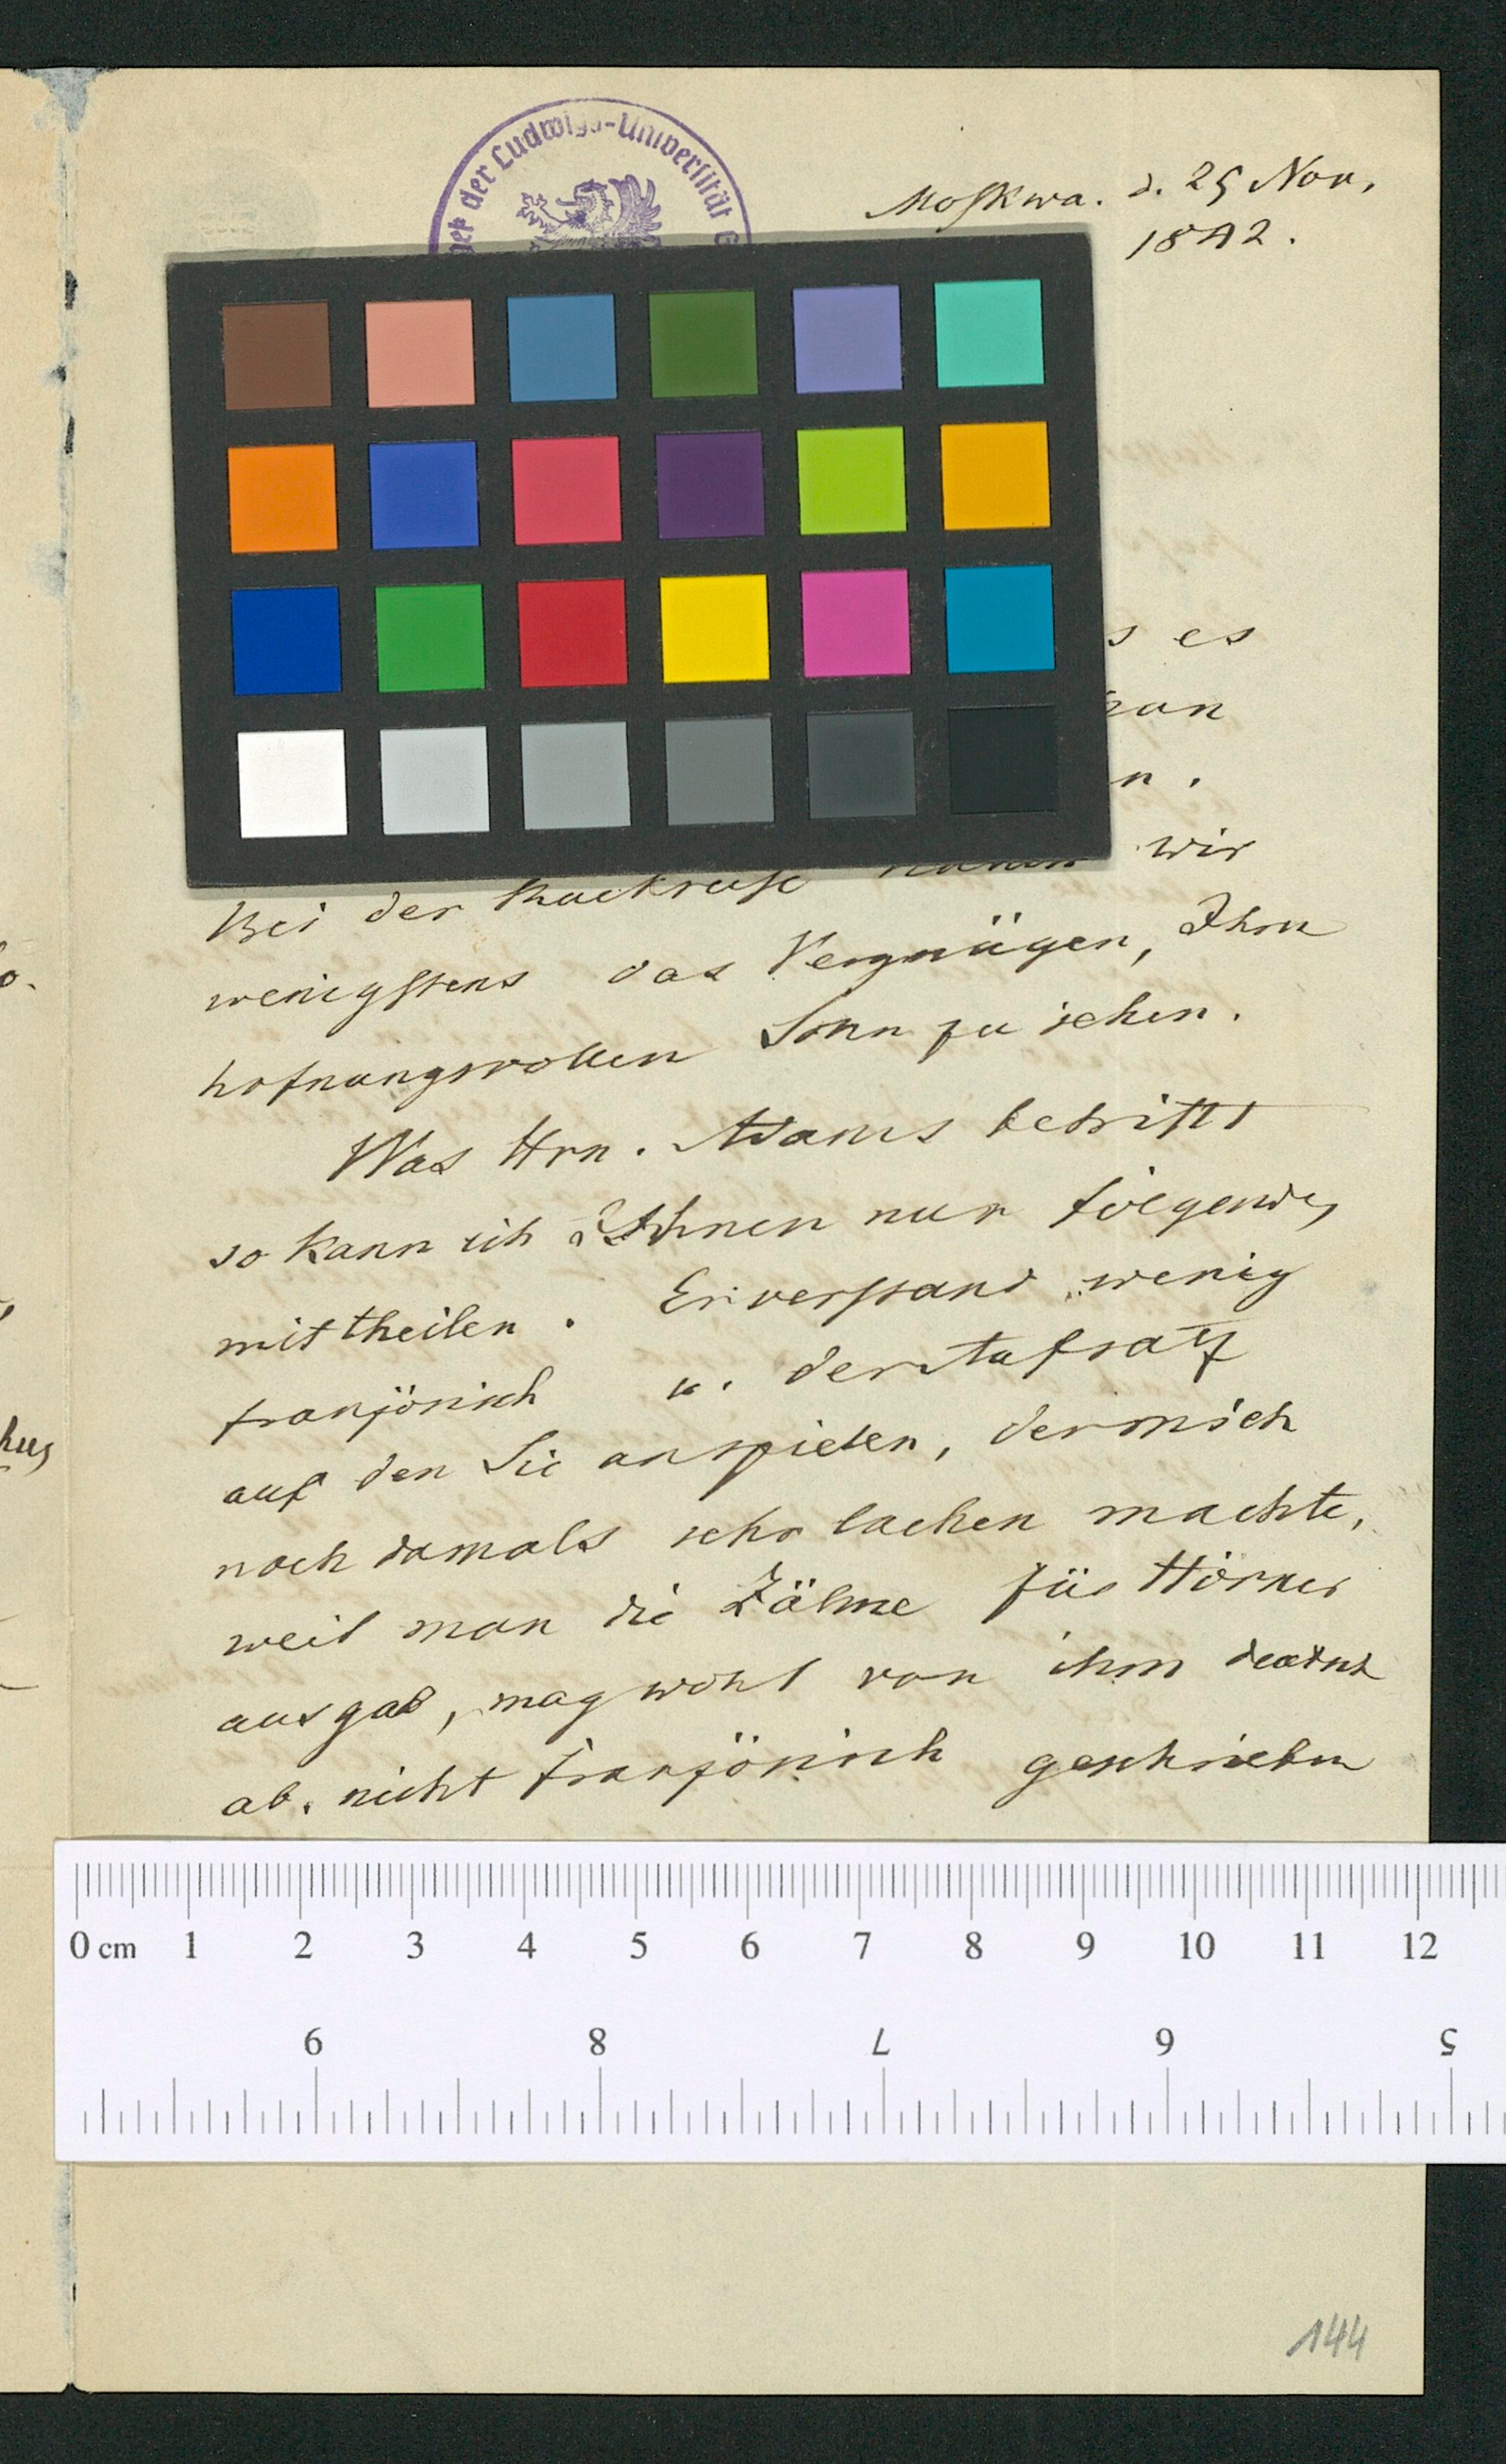 der Ludwigs-Universität G
Moskwa. d. 25 Nov.
1842.
s es
n.
Bei der Rückreise haben wir
wenigstens das Vergnügen, Ihren
hofnungsvollen Sohn zu sehen.
Was Hrn. Adams betrifft
so kann ich Ihnen nur folgendes
mittheilen. Er verstand wenig
französisch u. der Aufsatz
auf den Sie anspielen, der mich
noch damals sehr lachen machte,
weil man die Zähne für Hörner
ausgab, mag wohl von ihm
ab. nicht französisch geschrieben
0 cm 1 2 3 4 5 6 7 8 9 10 11 12
9 8 7 6 5
144